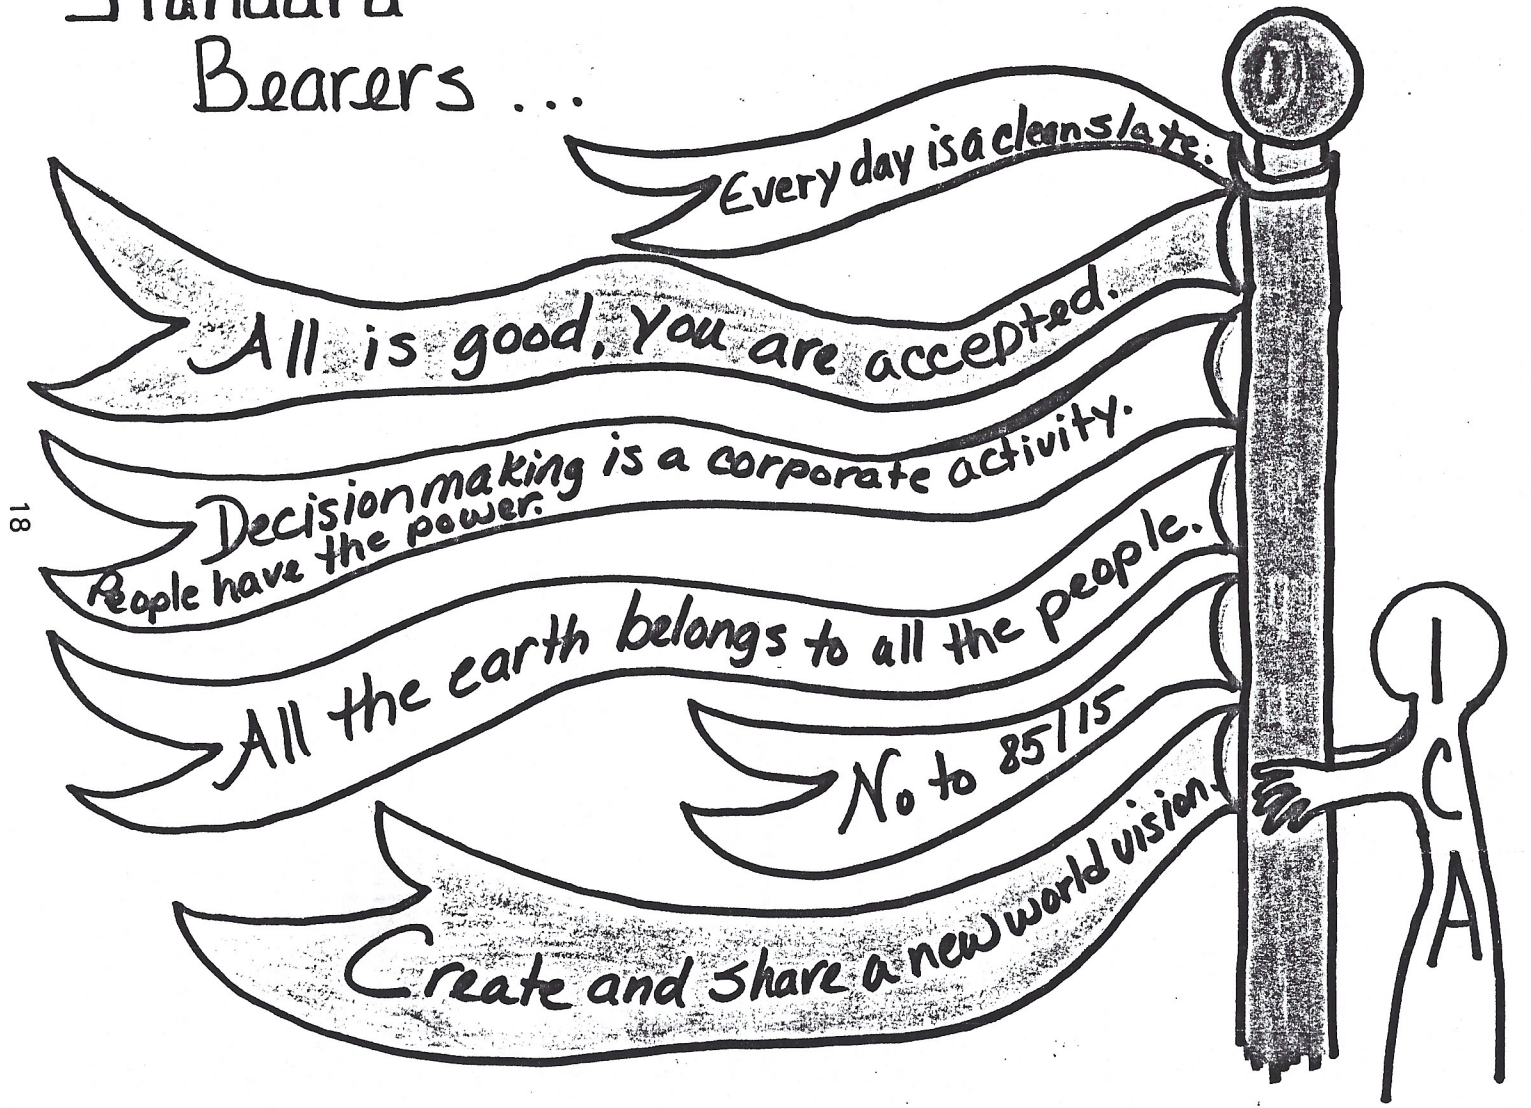 Standard
Bearers ...
Every day is a clean slate.
All is good, you are accepted.
Decision making is a corporate activity.
People have the power.
All the earth belongs to all the people.
No to 85/15
Create and share a new world vision.
I
C
A
18